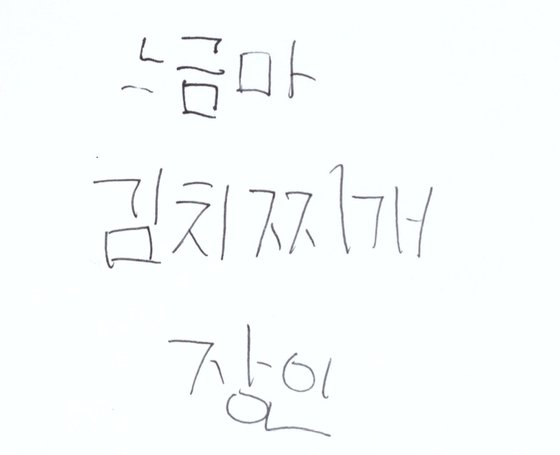 느금마
김치찌개
장인